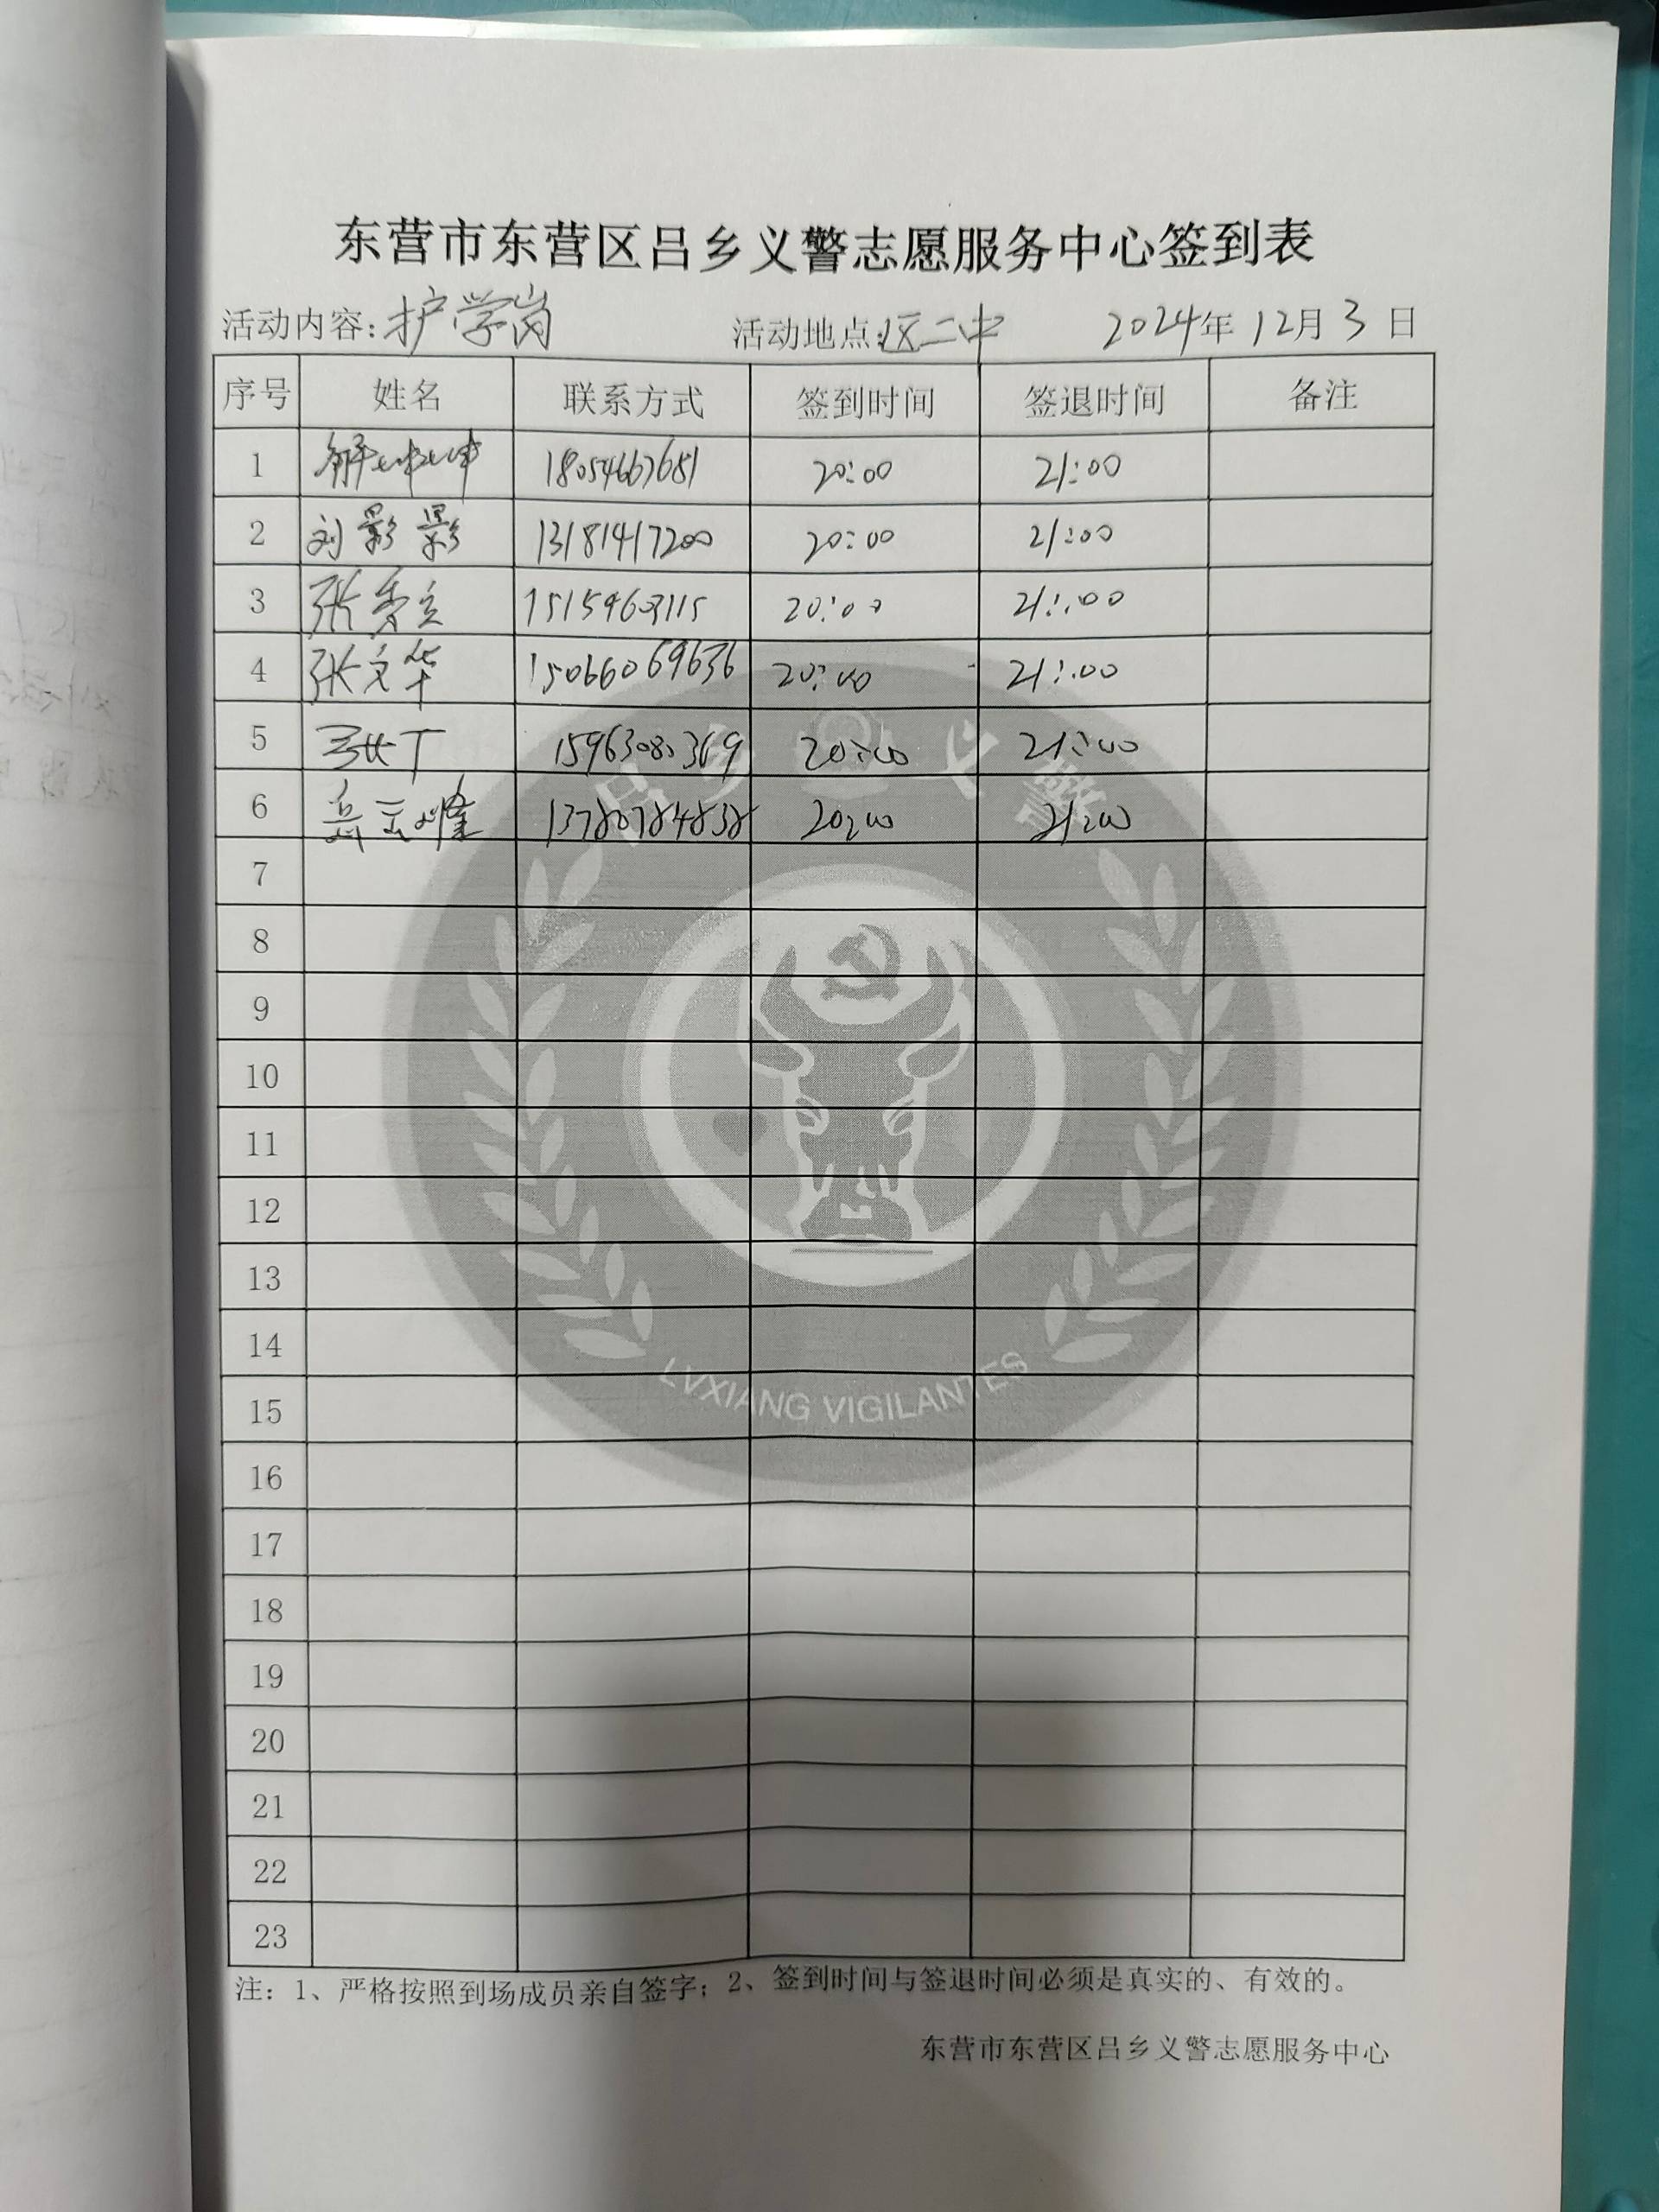 东营市东营区吕乡义警志愿服务中心签到表
活动内容: 护学岗 活动地点: 区二中 2024年12月3日
序号 姓名 联系方式 签到时间 签退时间 备注
1 解坤坤 18054667681 20:00 21:00
2 刘影影 13181417200 20:00 21:00
3 张秀立 20:00 21:00
4 张文华 15066069636 20:00 21:00
5 15963080369 20:00 21:00
6 岳云峰 13780784838 20:00 21:00
7
8
9
10
11
12
13
14
15
16
17
18
19
20
21
22
23
吕乡义警
LVXIANG VIGILANTES
注：1、严格按照到场成员亲自签字；2、签到时间与签退时间必须是真实的、有效的。
东营市东营区吕乡义警志愿服务中心